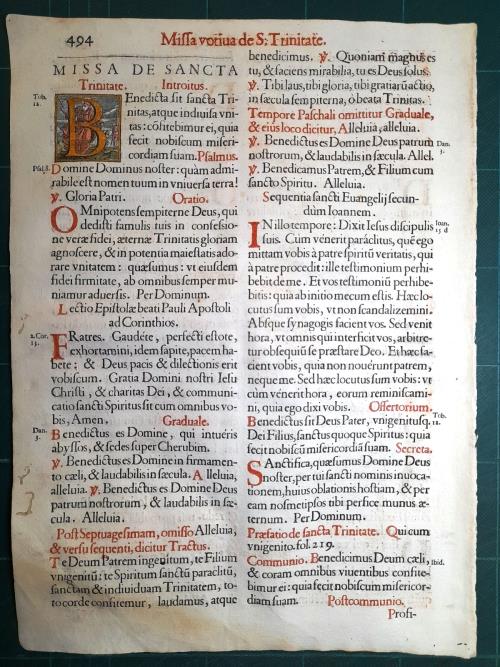 494
Missa votiua de S. Trinitate.
MISSA DE SANCTA
Trinitate. Introitus.
Tob. 12.
Benedicta sit sancta Tri-
nitas, atque indiuisa vni-
tas: cōfitebimur ei, quia
fecit nobiscum miseri-
cordiam suam. Psalmus.
Psal. 8.
Domine Dominus noster: quàm admi-
rabile est nomen tuum in vniuersa terra!
℣. Gloria Patri. Oratio.
OMnipotens sempiterne Deus, qui
dedisti famulis tuis in confessio-
ne veræ fidei, æternæ Trinitatis gloriam
agnoscere, & in potentia maiestatis ado-
rare vnitatem: quæsumus: vt eiusdem
fidei firmitate, ab omnibus semper mu-
niamur aduersis. Per Dominum.
Lectio Epistolæ beati Pauli Apostoli
ad Corinthios.
2. Cor. 13.
FRatres. Gaudéte, perfecti estote,
exhortamini, idem sapite, pacem ha-
bete: & Deus pacis & dilectionis erit
vobiscum. Gratia Domini nostri Iesu
Christi, & charitas Dei, & communi-
catio sancti Spiritus sit cum omnibus vo-
bis, Amen. Graduale.
Dan. 3.
Benedictus es Domine, qui intuéris
abyssos, & sedes super Cherubim.
℣. Benedictus es Domine in firmamen-
to cæli, & laudabilis in sæcula. Alleluia,
alleluia. ℣. Benedictus es Domine Deus
patrum nostrorum, & laudabilis in sæ-
cula. Alleluia.
Post Septuagesimam, omisso Alleluia,
& versu sequenti, dicitur Tractus.
Te Deum Patrem ingenitum, te Filium
vnigenitū: te Spiritum sanctū paraclitū,
sanctam & indiuiduam Trinitatem, to-
to corde confitemur, laudamus, atque
benedicimus. ℣. Quoniam magnus es
tu, & faciens mirabilia, tu es Deus solus.
℣. Tibi laus, tibi gloria, tibi gratiarū actio,
in sæcula sempiterna, ô beata Trinitas.
Tempore Paschali omittitur Graduale,
& eius loco dicitur, Alleluia, alleluia.
℣. Benedictus es Domine Deus patrum
Dan. 3.
nostrorum, & laudabilis in sæcula. Allel.
℣. Benedicamus Patrem, & Filium cum
sancto Spiritu. Alleluia.
Sequentia sancti Euangelij secun-
dùm Ioannem.
Ioan. 15 d
IN illo tempore: Dixit Iesus discipulis
suis. Cùm vénerit paráclitus, quē ego
mittam vobis à patre spiritū veritatis, qui
à patre procedit: ille testimonium perhi-
bebit de me. Et vos testimoniū perhibe-
bitis: quia ab initio mecum estis. Hæc lo-
cutus sum vobis, vt non scandalizemini.
Absque synagogis facient vos. Sed venit
hora, vt omnis qui interficit vos, arbitre-
tur obsequiū se præstare Deo. Et hæc fa-
cient vobis, quia non nouérunt patrem,
neque me. Sed hæc locutus sum vobis: vt
cùm vénerit hora, eorum reminiscami-
ni, quia ego dixi vobis. Offertorium.
Tob. 12.
Benedictus sit Deus Pater, vnigenitusq.
Dei Filius, sanctus quoque Spiritus: quia
fecit nobiscū misericordiā suam. Secreta.
SAnctifica, quæsumus Domine Deus
noster, per tui sancti nominis inuoca-
tionem, huius oblationis hostiam, & per
eam nosmetipsos tibi perfice munus æ-
ternum. Per Dominum.
Præfatio de sancta Trinitate. Qui cum
vnigenito. fol. 219.
Communio. Benedicimus Deum cæli,
ibid.
& coram omnibus viuentibus confite-
bimur ei: quia fecit nobiscum misericor-
diam suam. Postcommunio.
Profi-